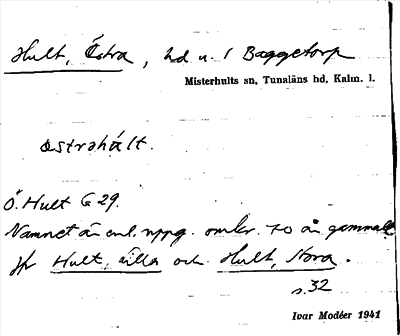 Hult, Östra, hd u. 1 Baggetorp
Misterhults sn, Tunaläns hd, Kalm. l.
östrahúlt.
Ö. Hult G 29.
Namnet är enl. uppg. omkr. 70 år gammalt
Jfr Hult, Lilla och Hult, Stora.
s. 32
Ivar Modéer 1941